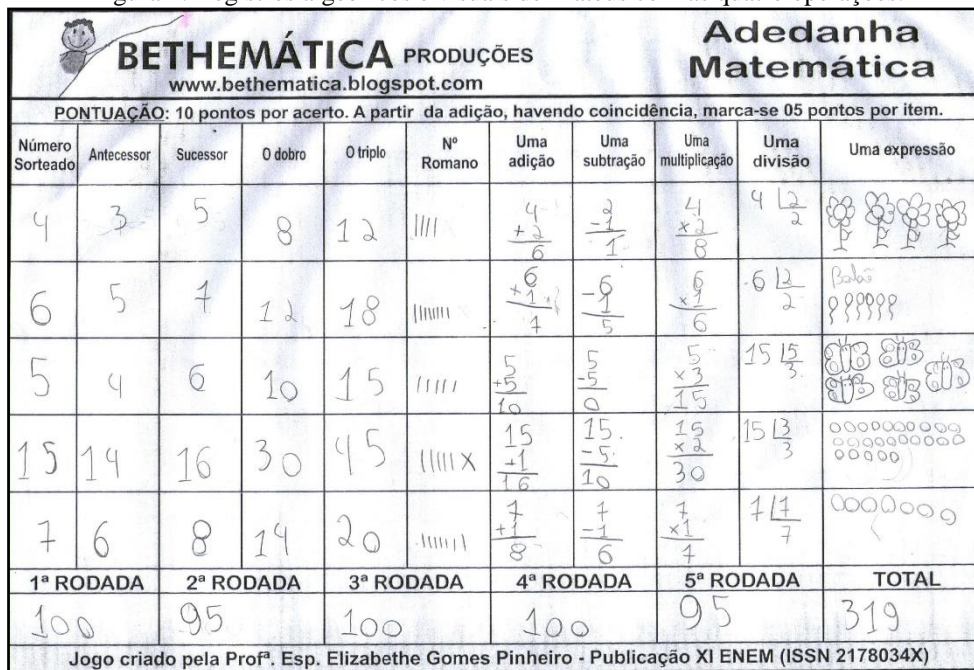 BETHEMÁTICA PRODUÇÕES
www.bethematica.blogspot.com
Adedanha
Matemática
PONTUAÇÃO: 10 pontos por acerto. A partir da adição, havendo coincidência, marca-se 05 pontos por item.
Número Sorteado Antecessor Sucessor O dobro O triplo Nº Romano Uma adição Uma subtração Uma multiplicação Uma divisão Uma expressão
4 3 5 8 12 IIII 4 +2 6 2 -1 1 4 x2 8 4 2 2
6 5 7 12 18 6 +1 7 6 -1 5 6 x1 6 6 2 2
5 4 6 10 15 IIIII 5 +5 10 5 -5 0 5 x3 15 15 5 3
15 14 16 30 45 IIIII X 15 +1 16 15 -5 10 15 x2 30 15 3 3
7 6 8 14 20 7 +1 8 7 -1 6 7 x1 7 7 7 7
1ª RODADA 2ª RODADA 3ª RODADA 4ª RODADA 5ª RODADA TOTAL
100 95 100 100 95 319
Jogo criado pela Profª. Esp. Elizabethe Gomes Pinheiro - Publicação XI ENEM (ISSN 2178034X)